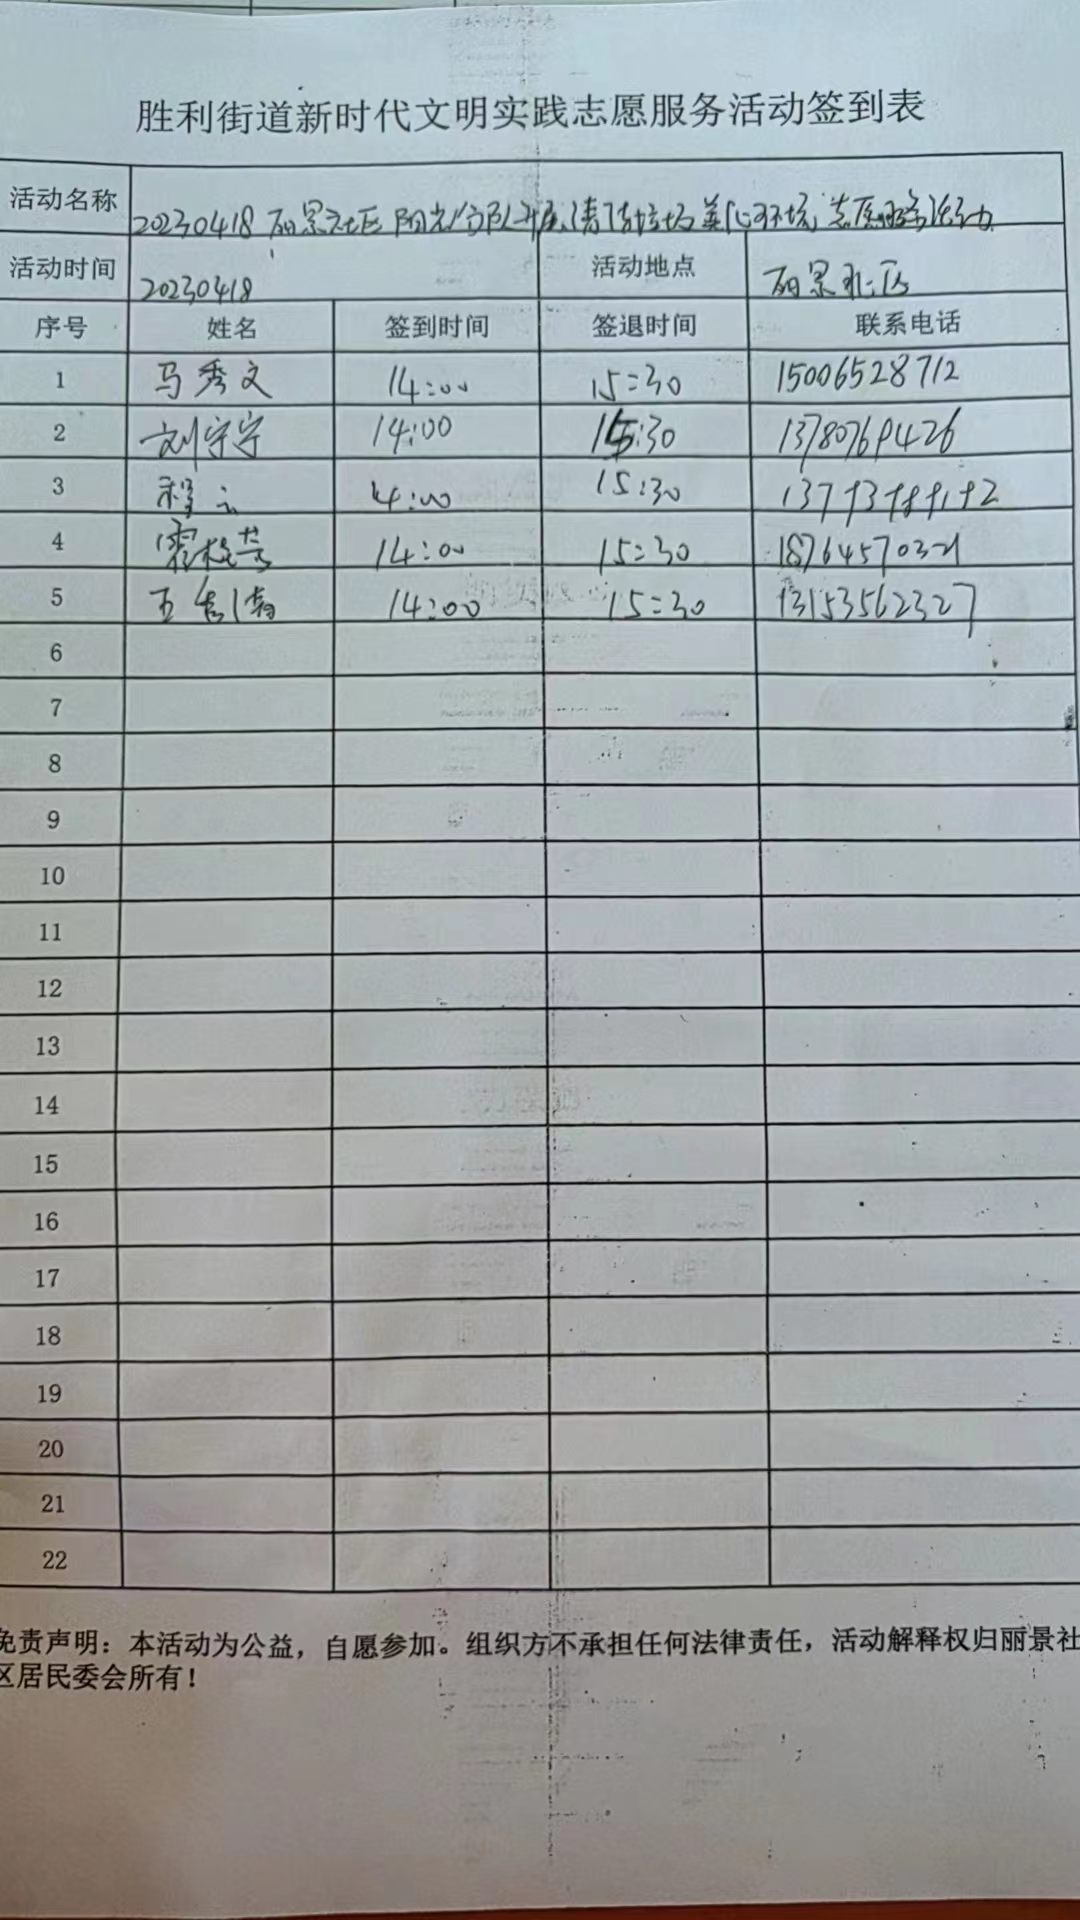 胜利街道新时代文明实践志愿服务活动签到表
活动名称 20230418 丽景社区阳光分队开展清理垃圾美化环境志愿服务活动
活动时间 20230418 活动地点 丽景社区
序号 姓名 签到时间 签退时间 联系电话
1 马秀文 14:00 15:30 15006528712
2 刘宁宁 14:00 15:30 13780769426
3 14:00 15:30
4 14:00 15:30
5 14:00 15:30 13153562327
6
7
8
9
10
11
12
13
14
15
16
17
18
19
20
21
22
免责声明：本活动为公益，自愿参加。组织方不承担任何法律责任，活动解释权归丽景社
区居民委会所有！